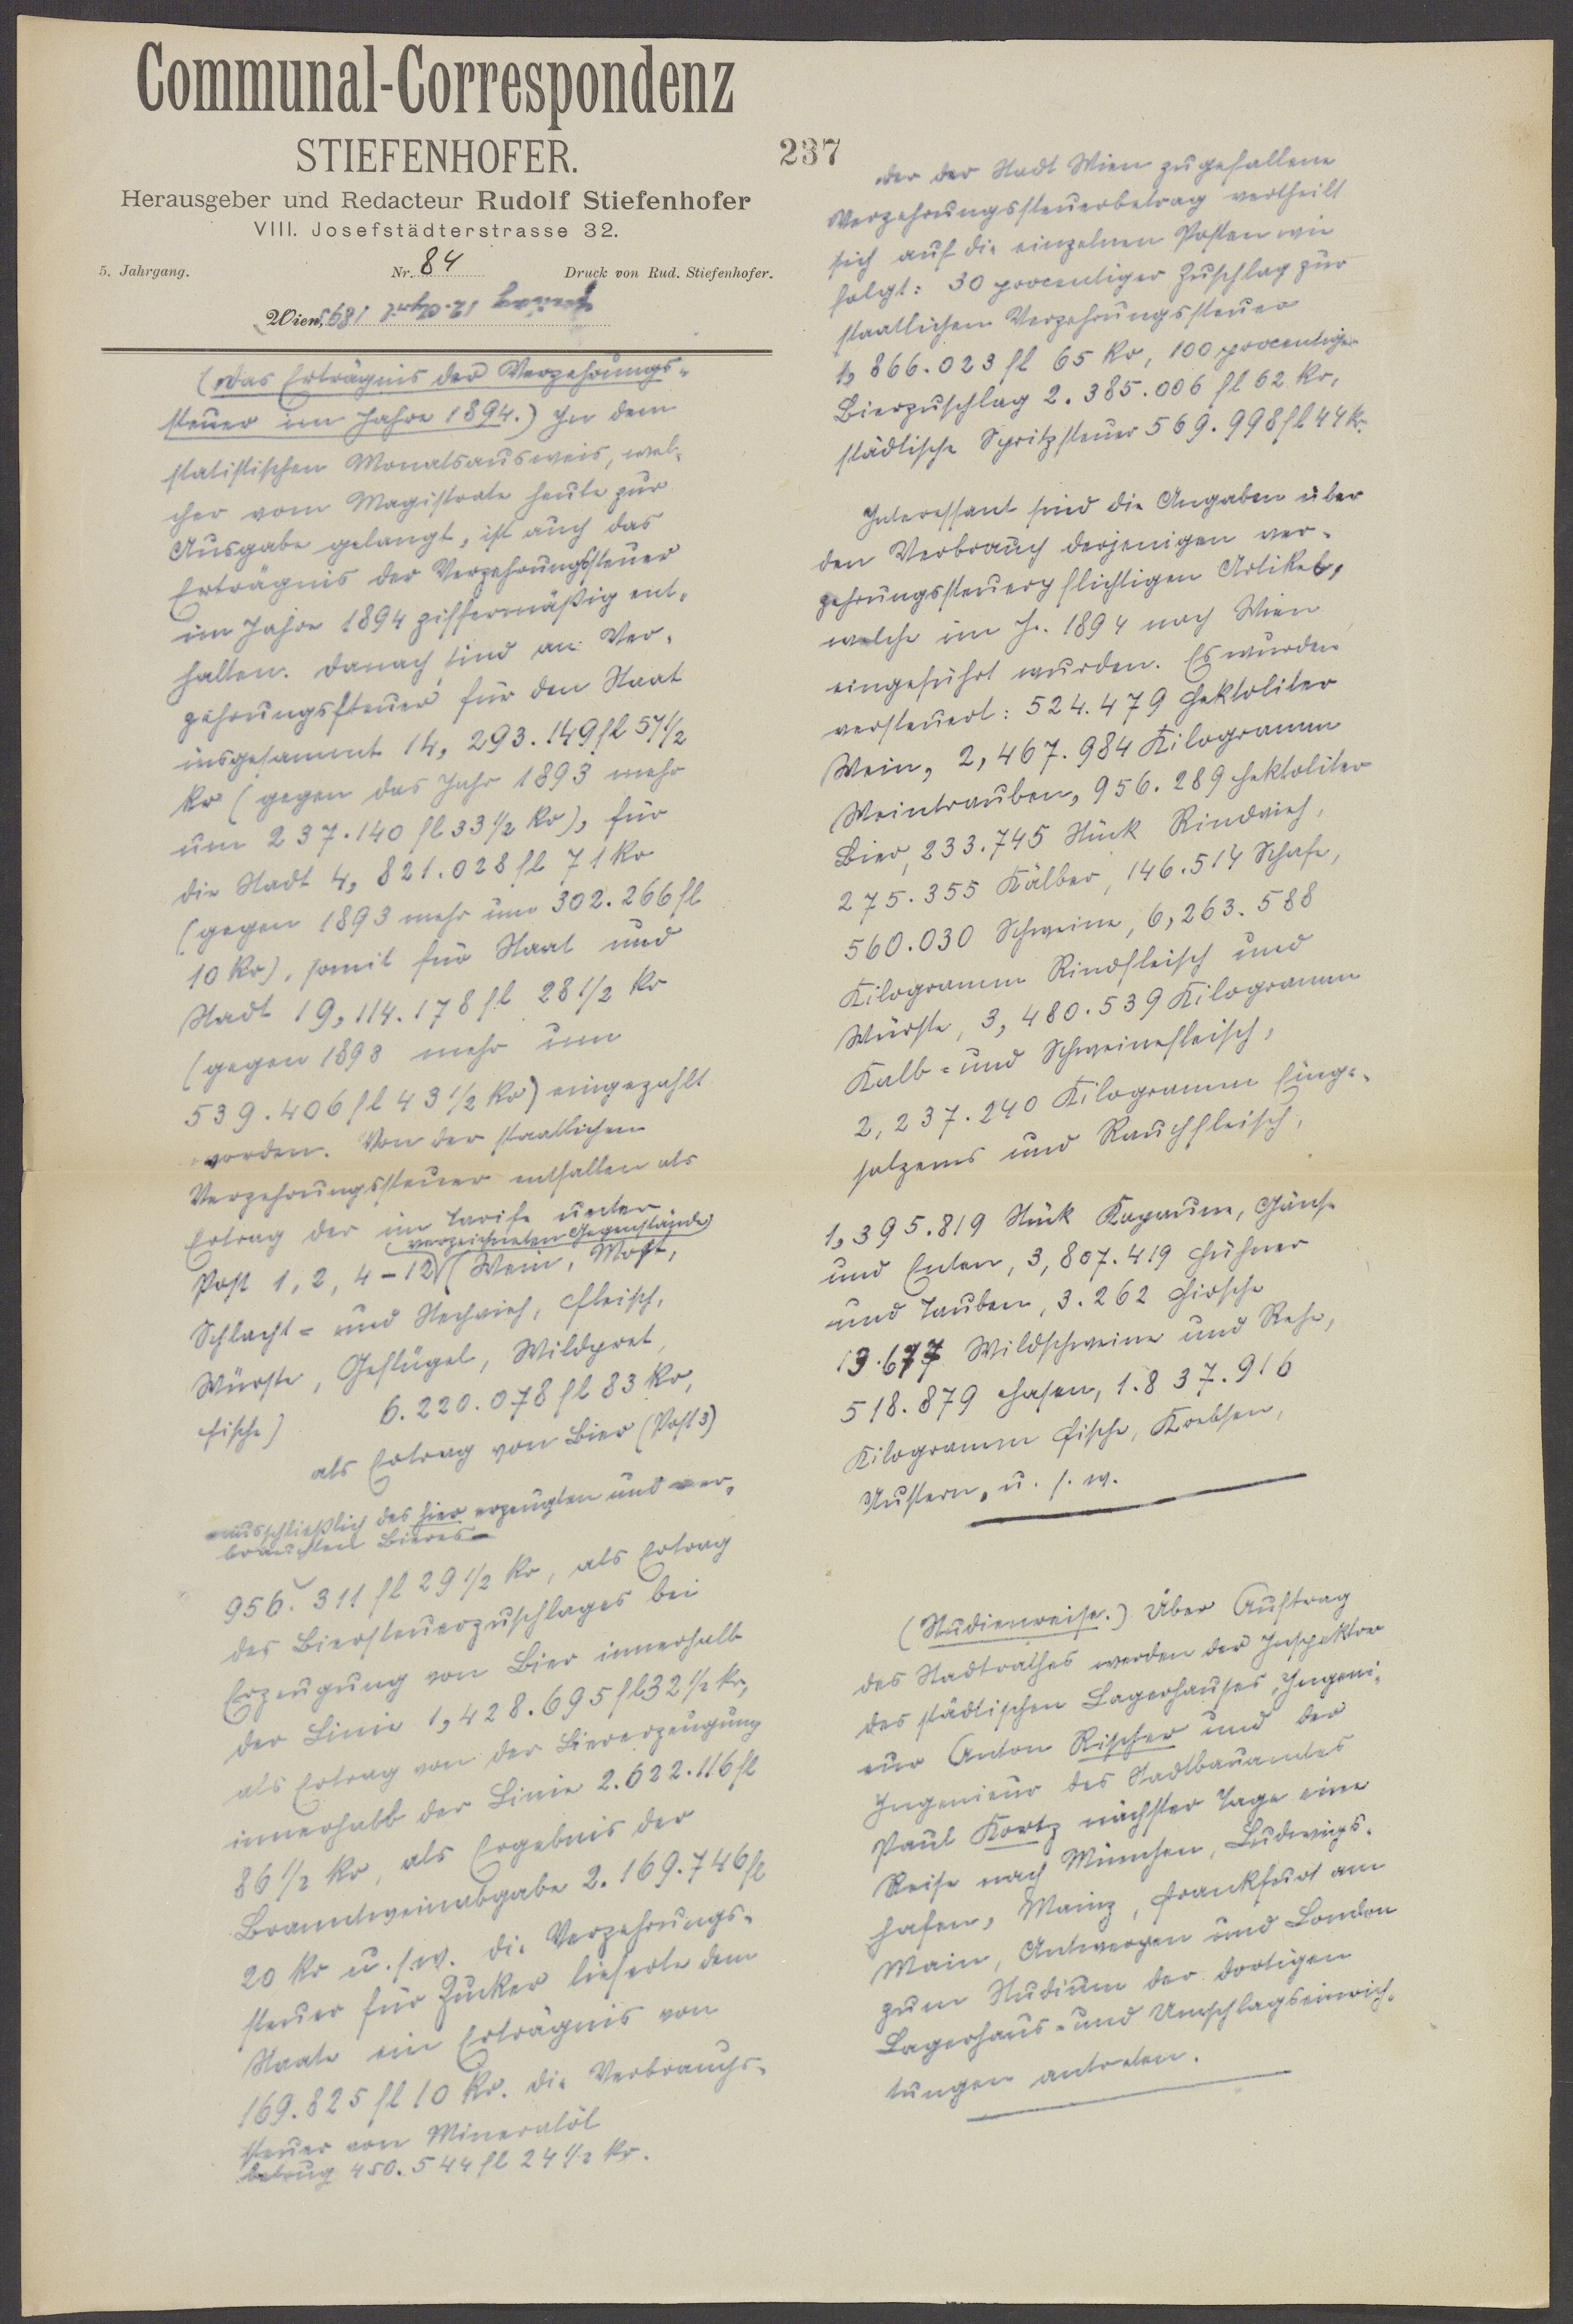 Communal-Correspondenz
STIEFENHOFER.
Herausgeber und Redacteur Rudolf Stiefenhofer
VIII. Josefstädterstrasse 32.
5. Jahrgang. Nr. 84 Druck von Rud. Stiefenhofer.
Wien, Freitag 12. April 1895
(Das Erträgnis der Verzehrungs-
steuer im Jahre 1894.) In dem
statistischen Monatsausweis, wel-
cher vom Magistrate heute zur
Ausgabe gelangt, ist auch das
Erträgnis der Verzehrungssteuer
im Jahre 1894 ziffermäßig ent-
halten. Danach sind an Ver-
zehrungssteuer für den Staat
insgesammt 14,293.149 fl 57 1/2
kr (gegen das Jahr 1893 mehr
um 237.140 fl 33 1/2 kr), für
die Stadt 4,821.028 fl 71 kr
(gegen 1893 mehr um 302.266 fl
10 kr), somit für Staat und
Stadt 19,114.178 fl 28 1/2 kr
(gegen 1893 mehr um
539.406 fl 43 1/2 kr) eingezahlt
worden. Von der staatlichen
Verzehrungssteuer entfallen als
Ertrag der im Tarife unter
Post 1, 2, 4-12 verzeichneten Gegenstände (Wein, Most,
Schlacht- und Stechvieh, Fleisch,
Würste, Geflügel, Wildpret,
Fische) 6.220.078 fl 83 kr,
als Ertrag von Bier (Post 3)
ausschließlich des hier erzeugten und ver-
brauchten Bieres
956.311 fl 29 1/2 kr, als Ertrag
des Biersteuerzuschlages bei
Erzeugung von Bier innerhalb
der Linie 1,428.695 fl 32 1/2 kr,
als Ertrag von der Biererzeugung
innerhalb der Linie 2.622.116 fl
86 1/2 kr, als Ergebnis der
Branntweinabgabe 2.169.746 fl
20 kr u. s. w. Die Verzehrungs-
steuer für Zucker lieferte dem
Staate ein Erträgnis von
169.825 fl 10 kr. Die Verbrauchs-
steuer von Mineralöl
betrug 450.544 fl 24 1/2 kr.
237
Der der Stadt Wien zugefallene
Verzehrungssteuerbetrag vertheilt
sich auf die einzelnen Posten wie
folgt: 30 procentiger Zuschlag zur
staatlichen Verzehrungssteuer
1,866.023 fl 65 kr, 100 procentiger
Bierzuschlag 2.385.006 fl 62 kr,
städtische Spritzsteuer 569.998 fl 44 kr.
Interessant sind die Angaben über
den Verbrauch derjenigen ver-
zehrungssteuerpflichtigen Artikel,
welche im J. 1894 nach Wien
eingeführt wurden. Es wurden
versteuert: 524.479 Hektoliter
Wein, 2,467.984 Kilogramm
Weintrauben, 956.289 Hektoliter
Bier, 233.745 Stück Rindvieh,
275.355 Kälber, 146.514 Schafe,
560.030 Schweine, 6,263.588
Kilogramm Rindfleisch und
Würste, 3,480.539 Kilogramm
Kalb- und Schweinefleisch,
2,237.240 Kilogramm Einge-
salzenes und Rauchfleisch,
1,395.819 Stück Kapaune, Gänse
und Enten, 3,807.419 Hühner
und Tauben, 3.262 Hirsche
13.677 Wildschweine und Rehe,
518.879 Hasen, 1.837.916
Kilogramm Fische, Krebsen,
Austern, u. s. w.
(Studienreise.) Über Auftrag
des Stadtrathes werden der Inspektor
des städtischen Lagerhauses, Ingeni-
eur Anton Rischer und der
Ingenieur des Stadtbauamtes
Paul Kortz nächster Tage eine
Reise nach München, Ludwigs-
hafen, Mainz, Frankfurt am
Main, Antwerpen und London
zum Studium der dortigen
Lagerhaus- und Umschlagseinrich-
tungen antreten.